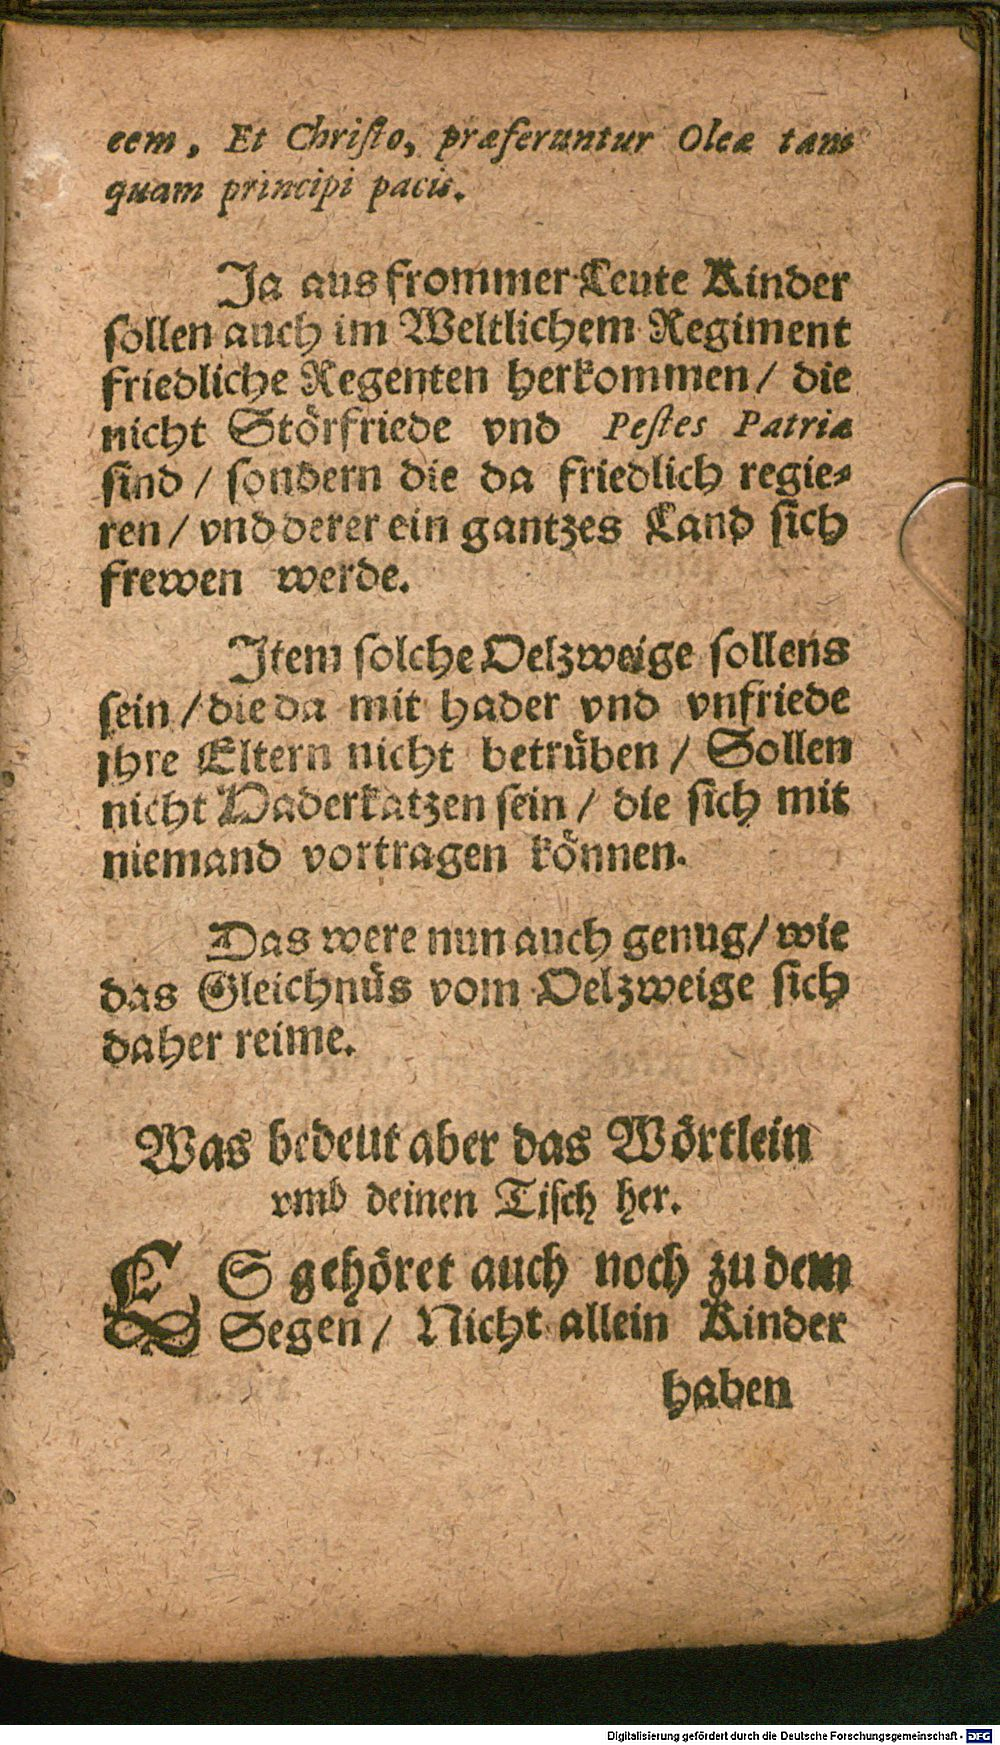 cem, Et Chriſto, præferuntur Oleæ tam
quam principi pacis.
Ja aus frommer Leute Kinder
ſollen auch im Weltlichem Regiment
friedliche Regenten herkommen / die
nicht Störfriede vnd Peſtes Patriæ
ſind / ſondern die da friedlich regie⸗
ren / vnd derer ein gantzes Land ſich
frewen werde.
Item ſolche Oelzweige ſollens
ſein / die da mit hader vnd vnfriede
ihre Eltern nicht betrüben / Sollen
nicht Haderkatzen ſein / die ſich mit
niemand vortragen können.
Das were nun auch genug / wie
das Gleichnüs vom Oelzweige ſich
daher reime.
Was bedeut aber das Wörtlein
vmb deinen Tiſch her.
ES gehöret auch noch zu dem
Segen / Nicht allein Kinder
haben
Digitalisierung gefördert durch die Deutsche Forschungsgemeinschaft - DFG